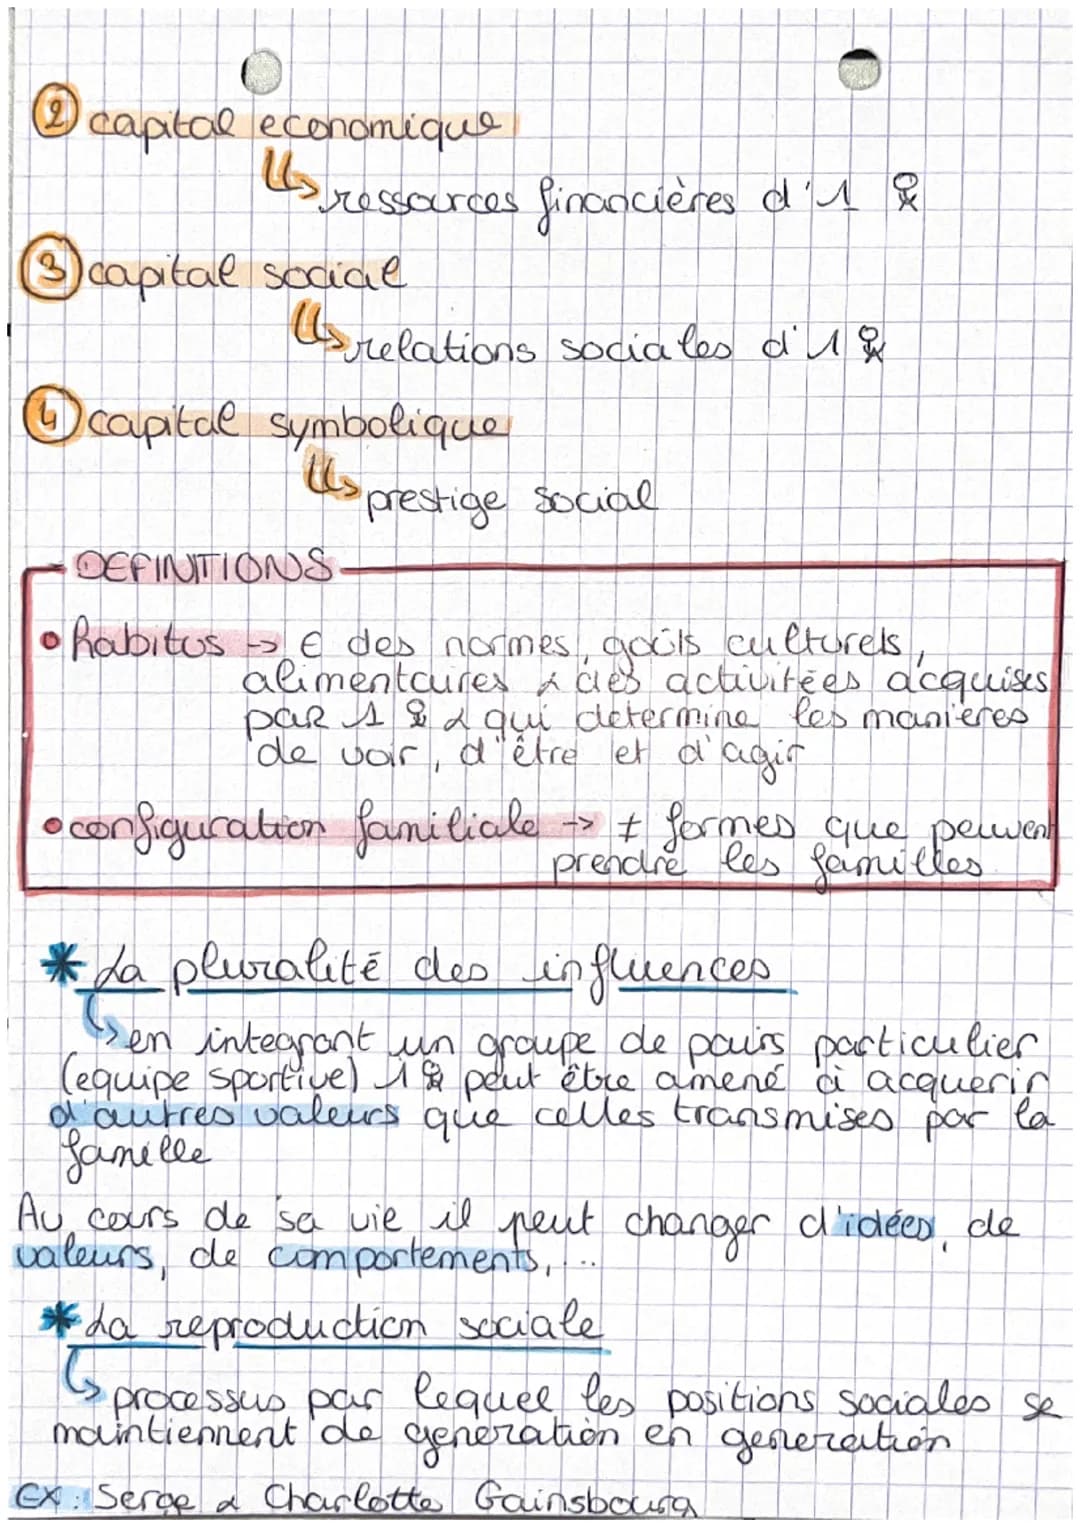 ② capital economique
ressources financières d'1
③ capital social
relations sociales d'1
④ capital symbolique
prestige social
DEFINITIONS
• habitus → € des normes, goûts culturels,
alimentaires & des activitées acquises
par 1 & qui determine les manières
de voir, d'être et d'agir
• configuration familiale → ≠ formes que peuvent
prendre les familles
* La pluralité des influences
en integrant un groupe de pairs particulier
(equipe sportive) 1 peut être amené à acquerir
d'autres valeurs que celles transmises par la
famille
Au cours de sa vie il peut changer d'idées, de
valeurs, de comportements, ...
* La reproduction sociale
processus par lequel les positions sociales se
maintiennent de generation en generation
EX : Serge & Charlotte Gainsbourg